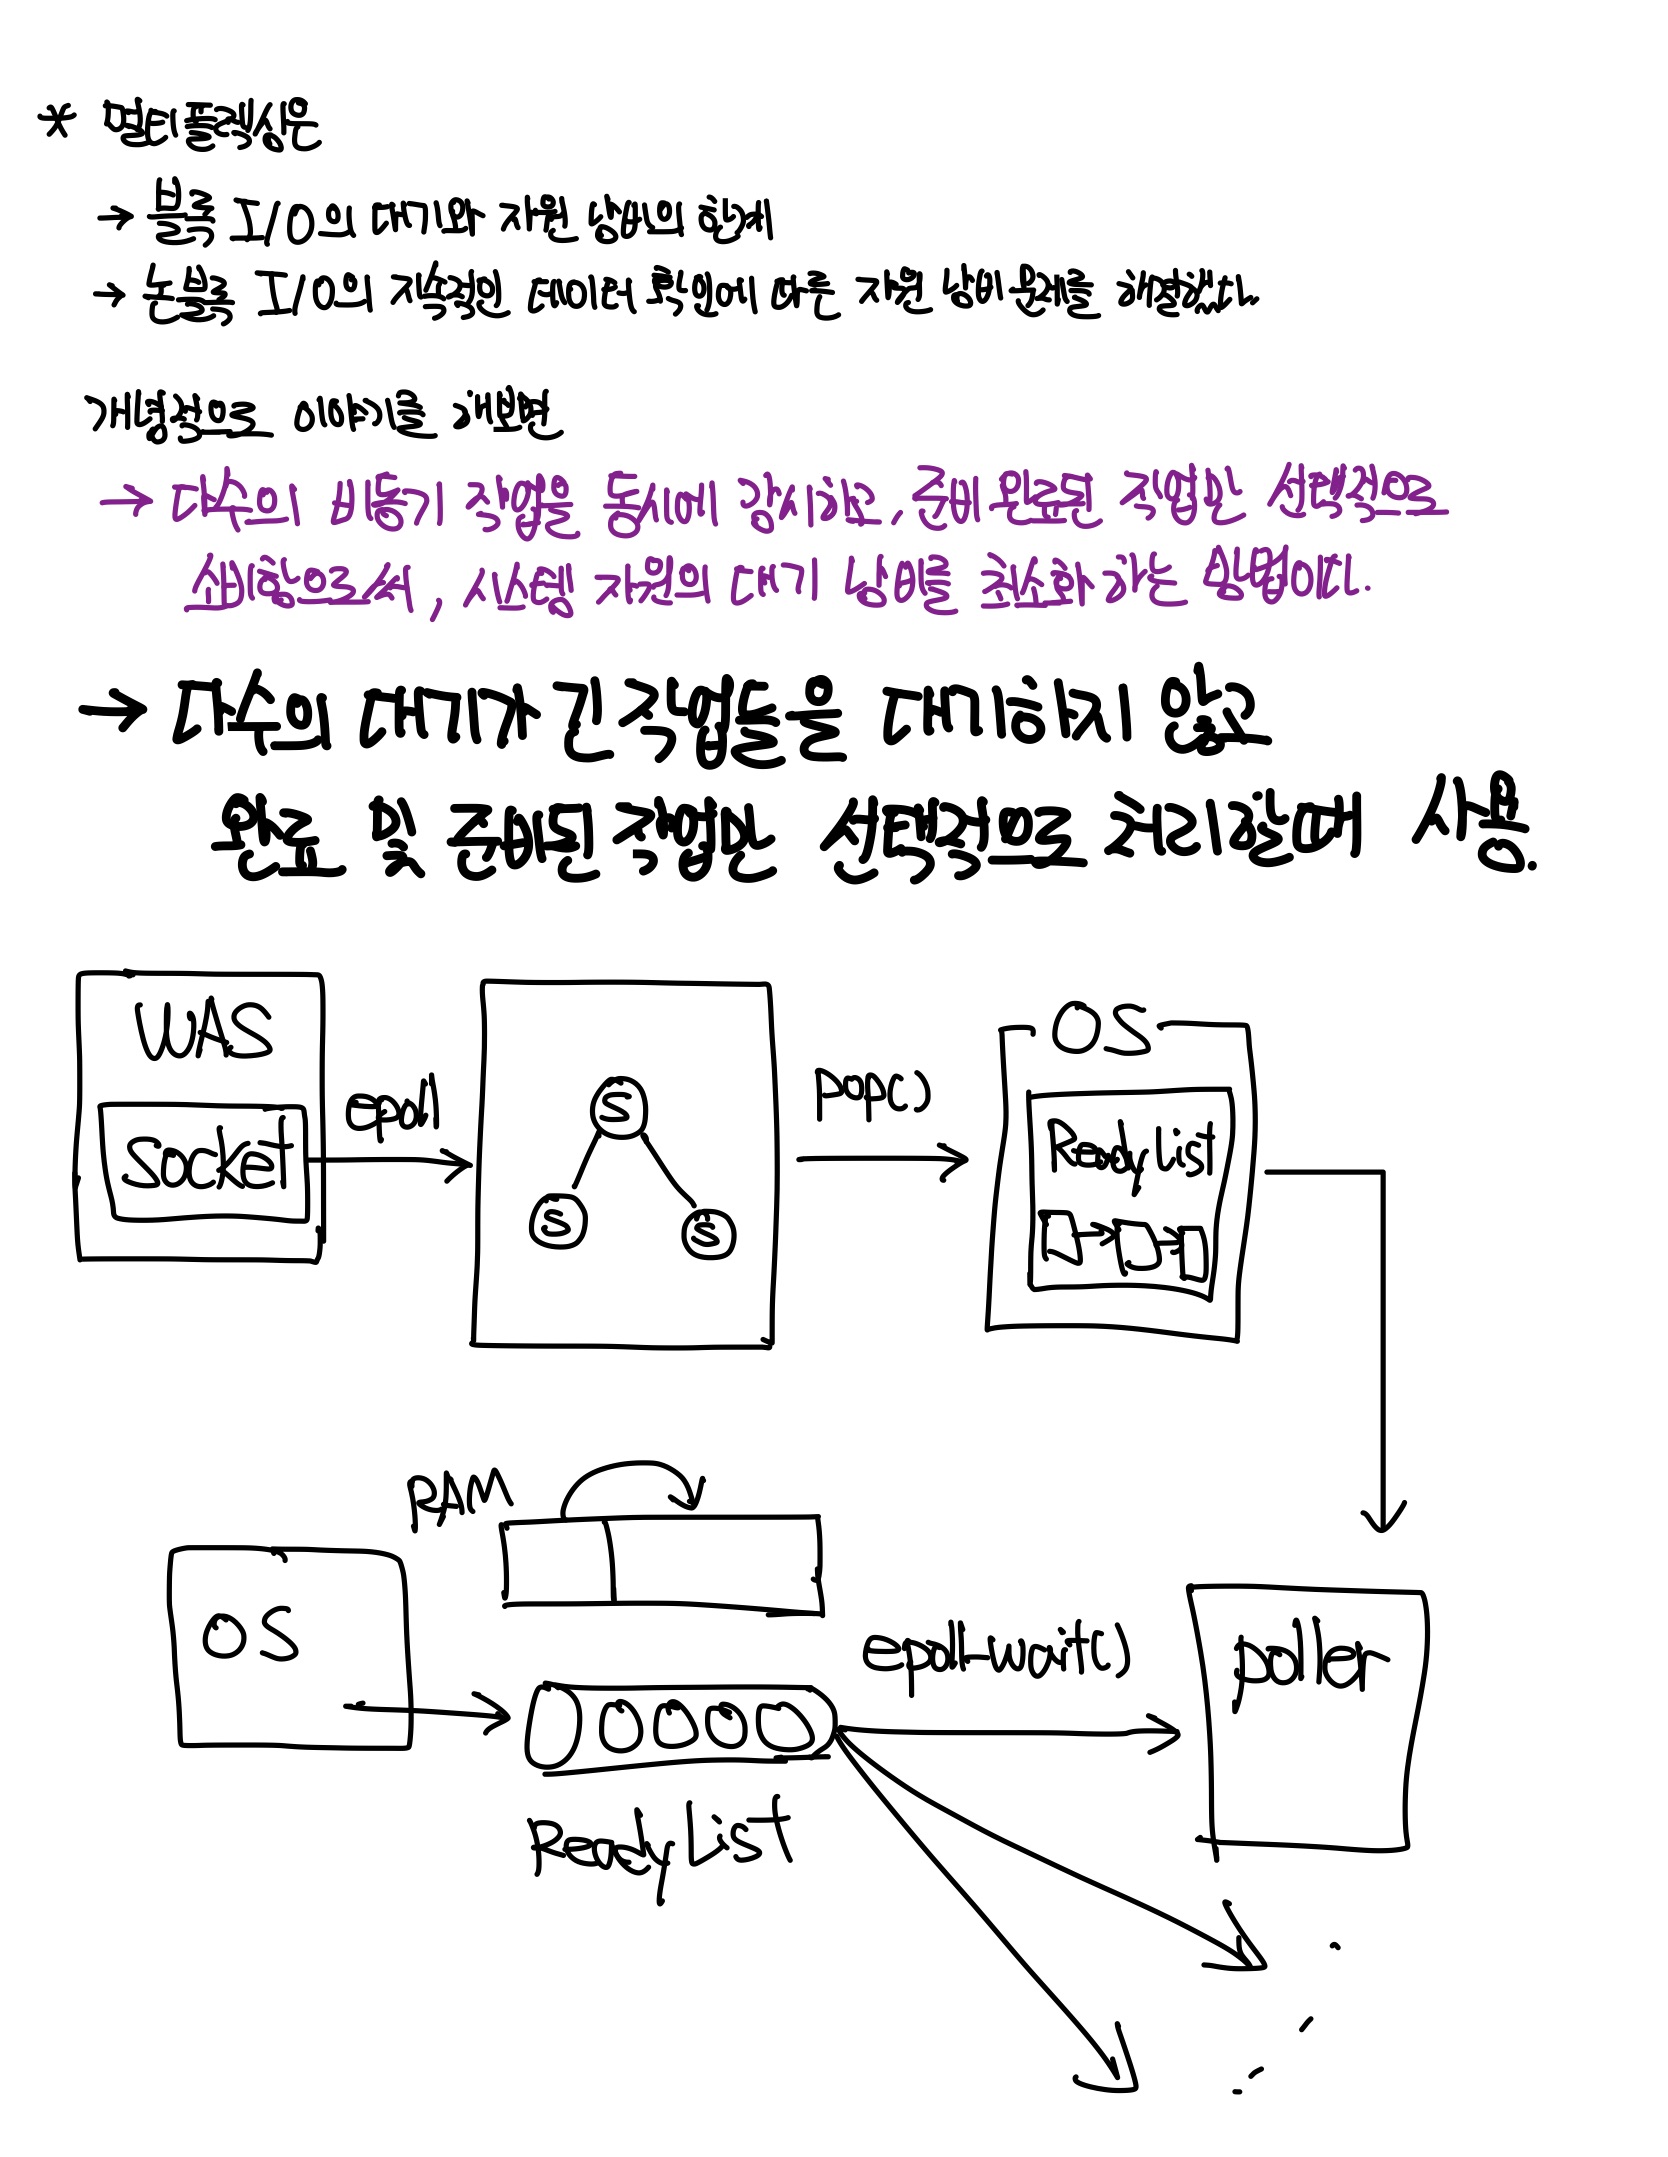 * 멀티플렉싱은
→ 블록 I/O의 대기와 자원 낭비의 한계
→ 논블록 I/O의 지속적인 데이터 확인에 따른 자원 낭비 문제를 해결했다.
개념적으로 이야기를 해보면
→ 다수의 비동기 작업을 동시에 감시하고, 준비 완료된 작업만 선택적으로
소비함으로써, 시스템 자원의 대기 낭비를 최소화 하는 방법이다.
→ 다수의 대기가 긴 작업들을 대기하지 않고
완료 및 준비된 작업만 선택적으로 처리할때 사용.
WAS
Socket
epoll
S
S
S
pop()
OS
Ready List
RAM
OS
Ready List
epoll-wait()
poller